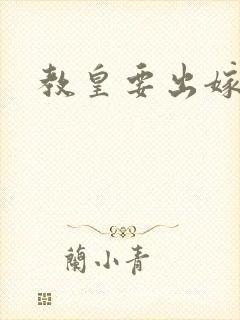 教皇要出嫁
蘭小青